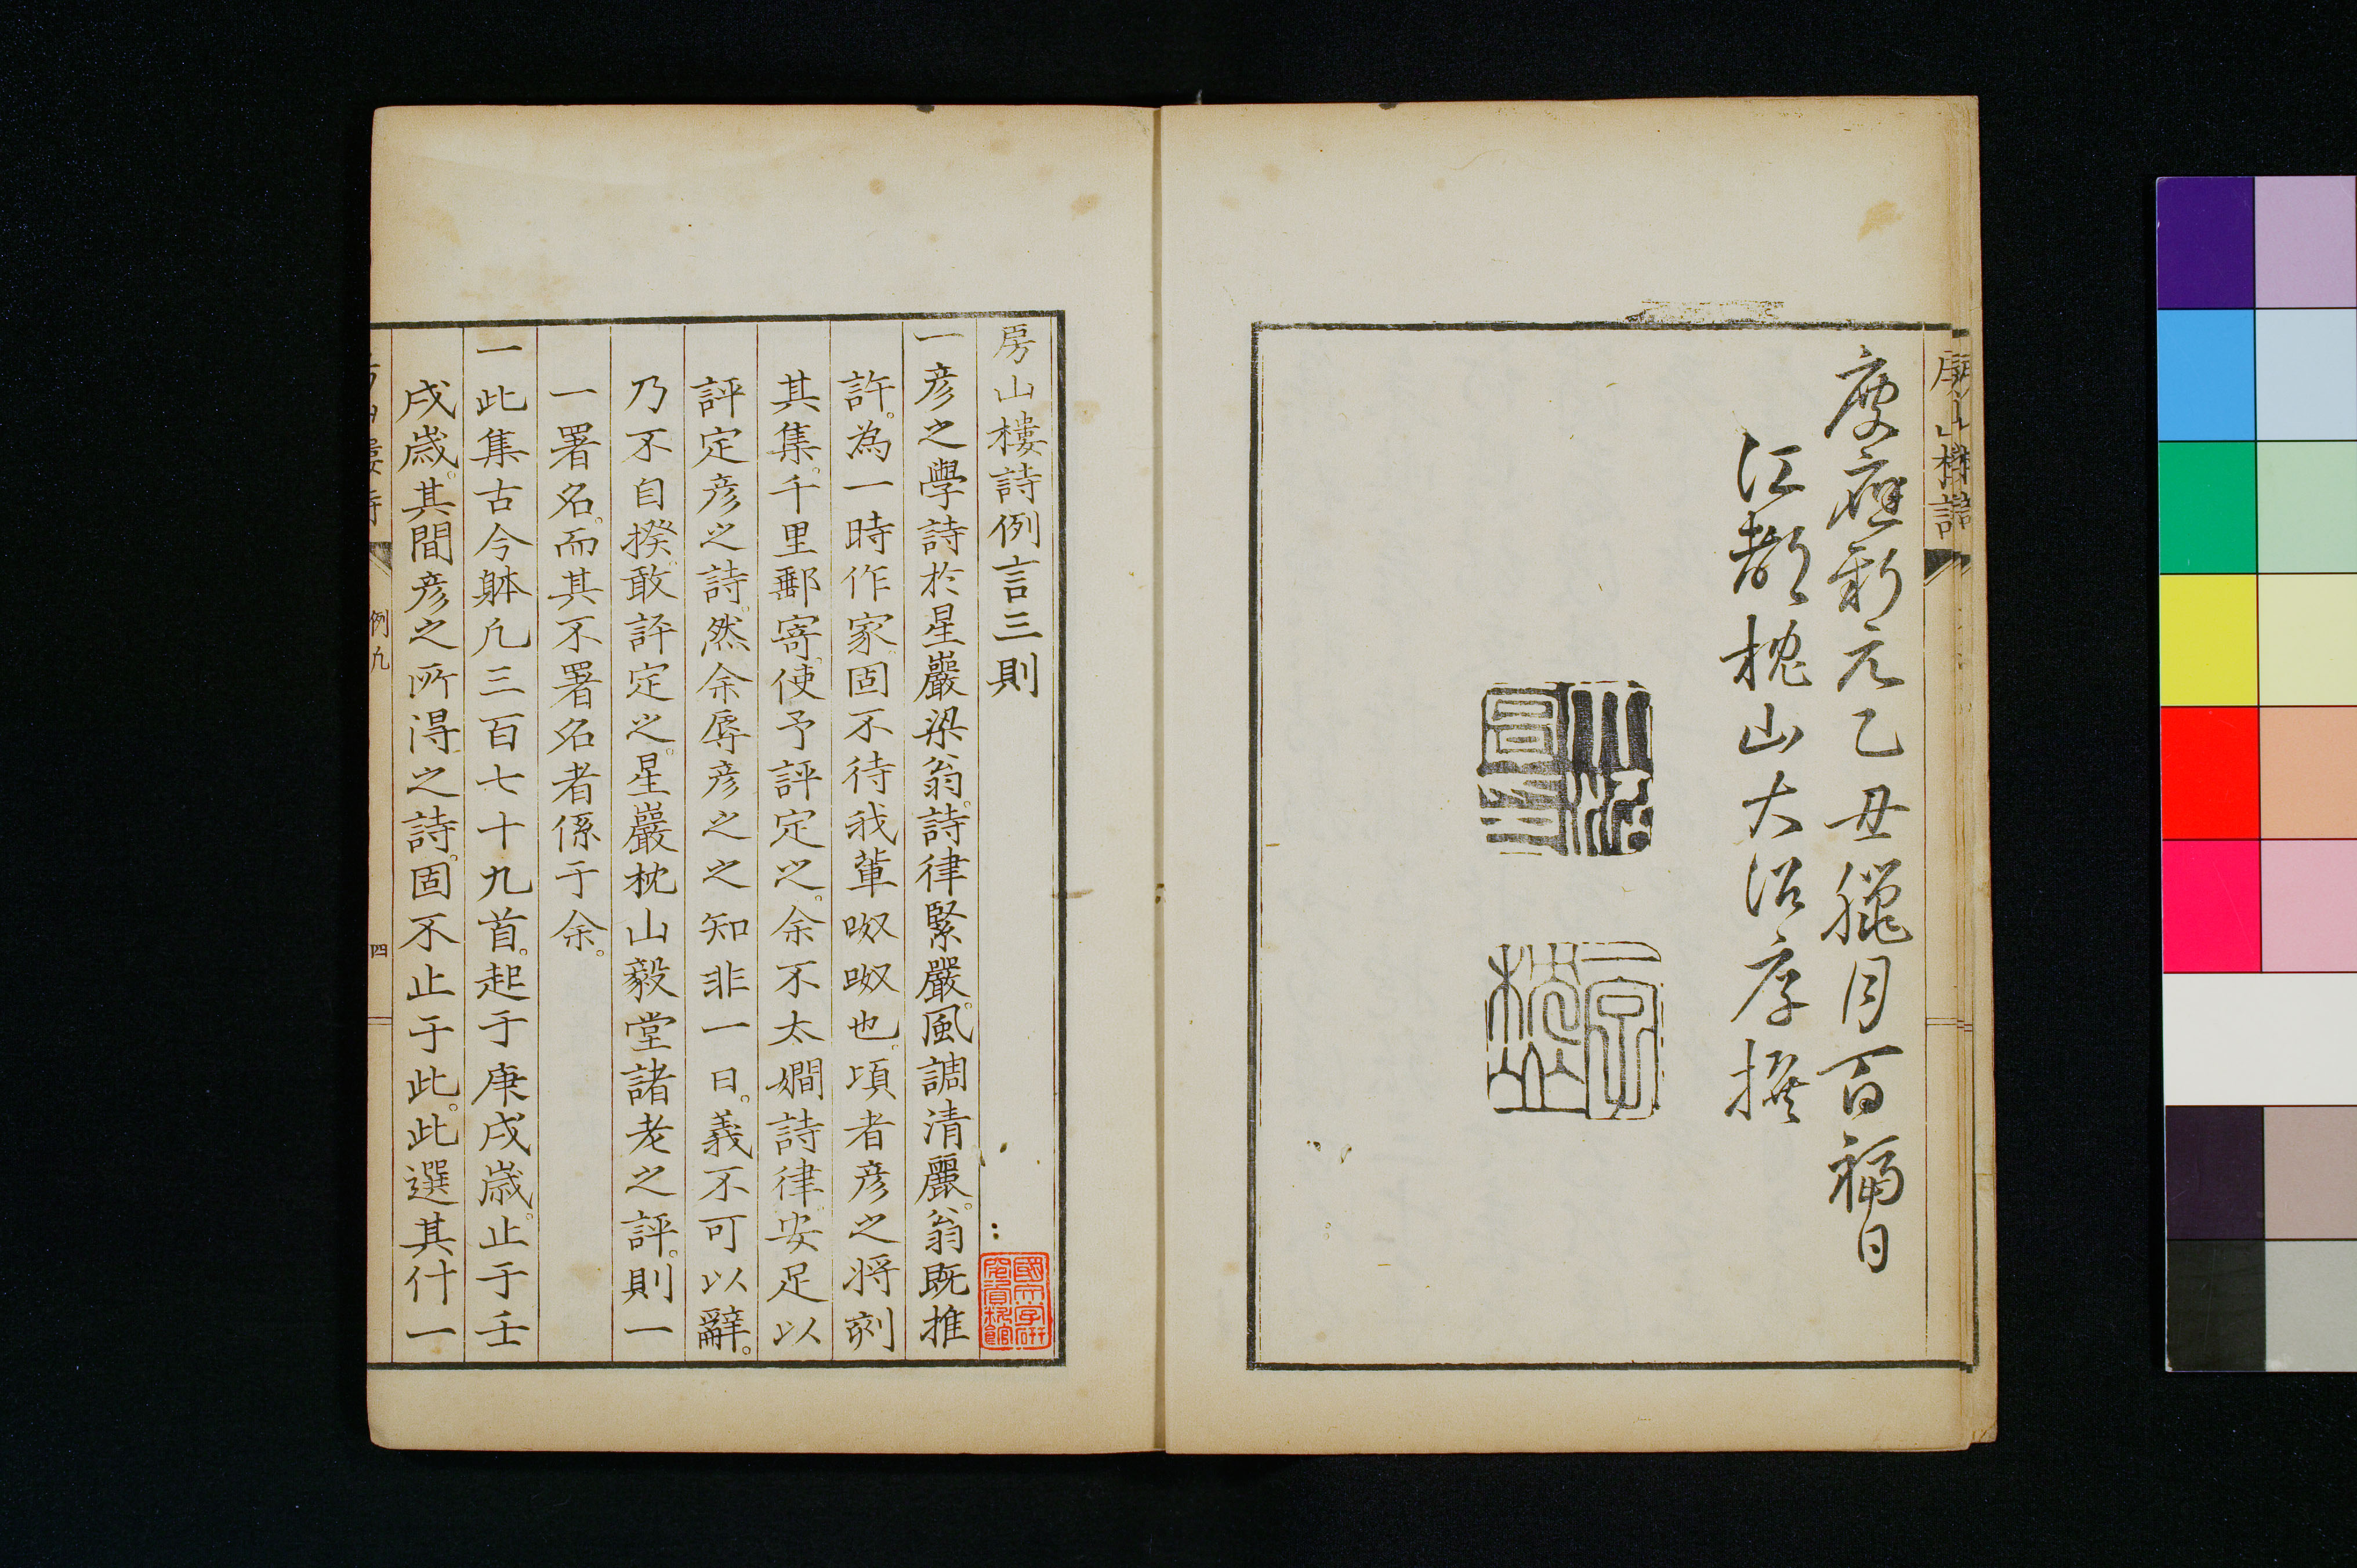 慶應新元乙丑臘月百福日
江都枕山大沼厚撰
房山樓詩
房山樓詩例言三則
一彦之學詩於星巖梁翁。詩律緊嚴。風調清麗。翁既推
許。為一時作家。固不待我輩呶呶也。頃者彦之将刻
其集。千里郵寄。使予評定之。余不太嫺詩律。安足以
評定彦之詩。然余辱彦之之知非一日。義不可以辭。
乃不自揆。敢評定之。星巖枕山毅堂諸老之評。則一
一署名。而其不署名者係于余。
一此集古今躰凡三百七十九首。起于庚戌歳。止于壬
戌歳。其間彦之所得之詩。固不止于此。此選其什一
例九
四